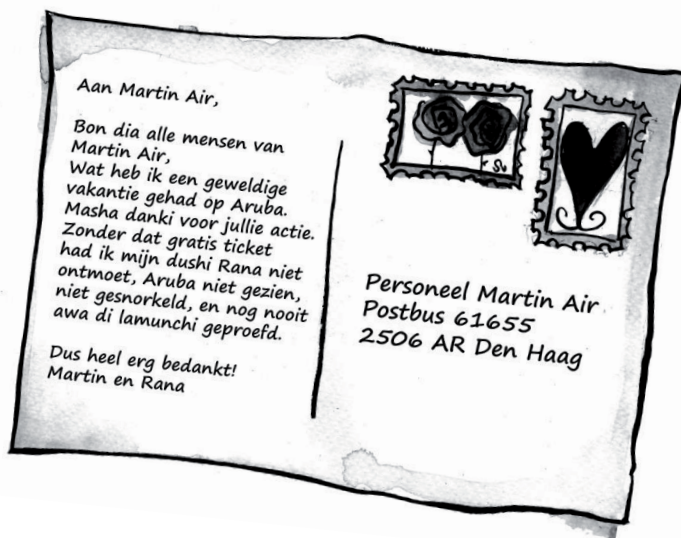 Aan Martin Air,
Bon dia alle mensen van
Martin Air,
Wat heb ik een geweldige
vakantie gehad op Aruba.
Masha danki voor jullie actie.
Zonder dat gratis ticket
had ik mijn dushi Rana niet
ontmoet, Aruba niet gezien,
niet gesnorkeld, en nog nooit
awa di lamunchi geproefd.
Dus heel erg bedankt!
Martin en Rana
Personeel Martin Air
Postbus 61655
2506 AR Den Haag